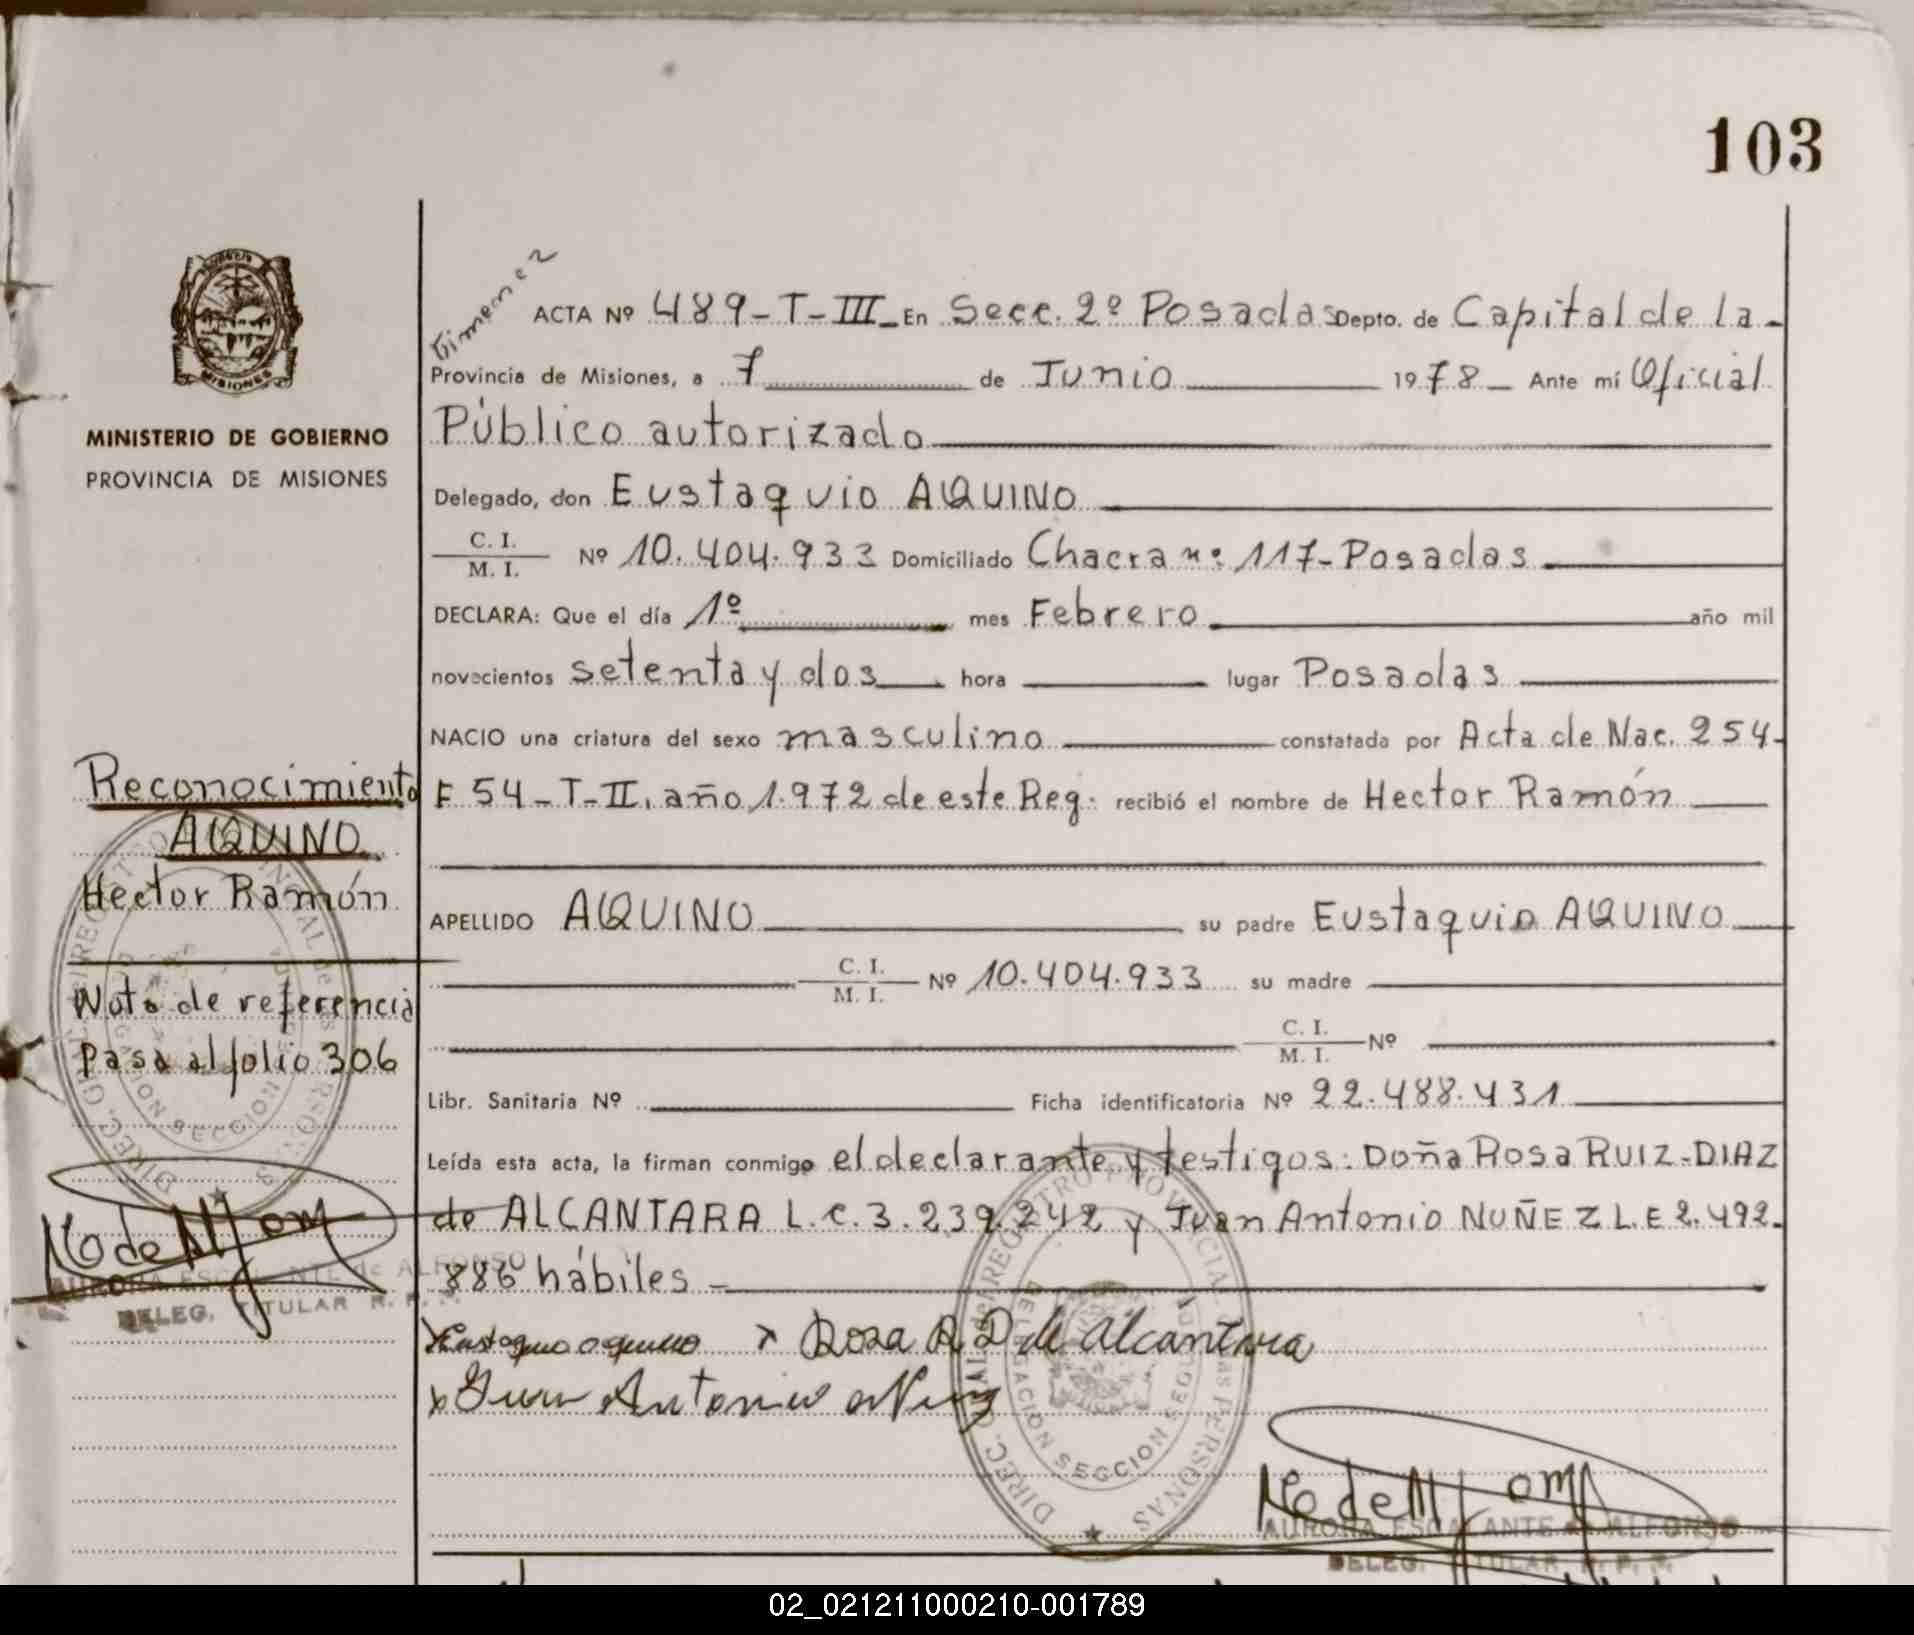 103
Gimenez
ACTA Nº 489-T-III- En Secc. 2º Posadas Depto. de Capital de la-
Provincia de Misiones, a 7 de Junio 1978- Ante mí Oficial
Público autorizado
MINISTERIO DE GOBIERNO
PROVINCIA DE MISIONES
Delegado, don Eustaquio AQUINO
C. I.
M. I. Nº 10.404.933 Domiciliado Chacra nº 117-Posadas
DECLARA: Que el día 1º mes Febrero año mil
novecientos setenta y dos hora lugar Posadas
NACIO una criatura del sexo masculino constatada por Acta de Nac. 254-
F 54-T-II. año 1.972 de este Reg. recibió el nombre de Hector Ramón
APELLIDO AQUINO su padre Eustaquio AQUINO
C. I.
M. I. Nº 10.404.933 su madre
C. I.
M. I. Nº
Libr. Sanitaria Nº Ficha identificatoria Nº 22.488.431
Leída esta acta, la firman conmigo el declarante y testigos: Doña Rosa RUIZ-DIAZ
de ALCANTARA L.C. 3.239.242 y Juan Antonio NUÑEZ L.E 2.492.
886 hábiles-
Eustaquio aquino x Rosa R D de Alcantara
x Juan Antonio Nuñez
Reconocimiento
AQUINO
Hector Ramón
Nota de referencia
Pasa al folio 306
AURORA ESCALANTE de ALFONSO
DELEG. TITULAR R. P. P.
DIREC. GRAL. del REGISTRO PROVINCIAL de las PERSONAS
DELEGACION SECCION SEGUNDA
AURORA ESCALANTE de ALFONSO
DELEG. TITULAR R. P. P.
MISIONES
02_021211000210-001789